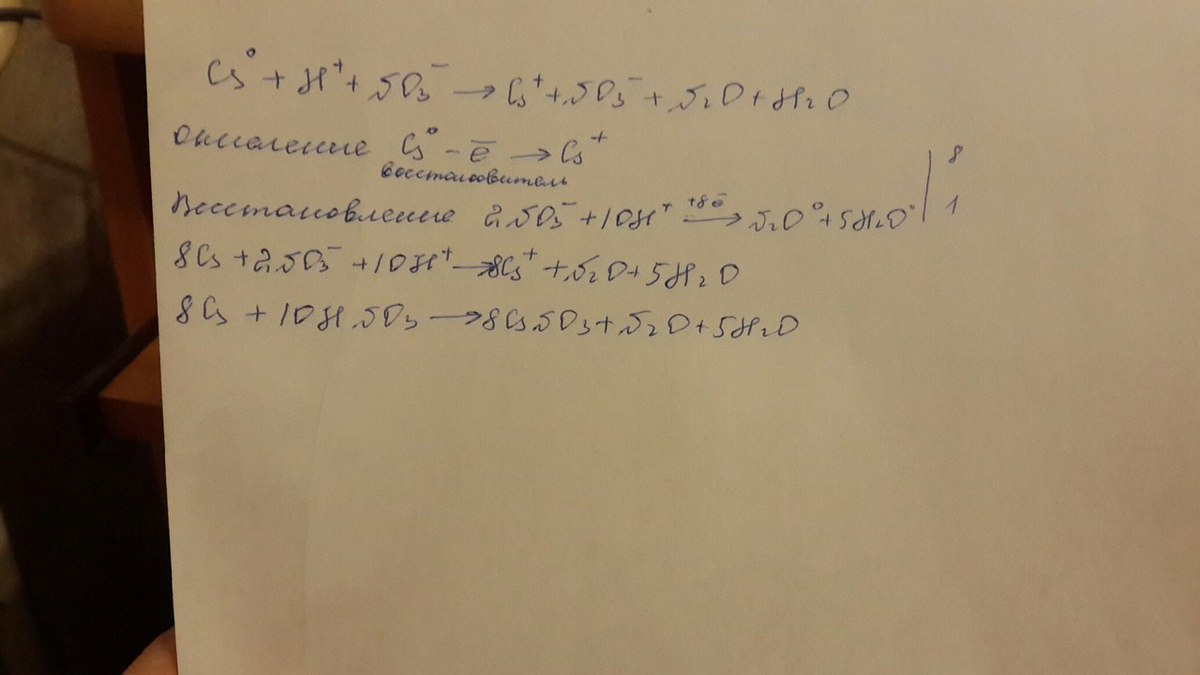 Cs⁰ + H⁺ + NO₃⁻ → Cs⁺ + NO₃⁻ + N₂O + H₂O
окисление Cs⁰ - ē → Cs⁺ | 8
восстановитель
Восстановление 2NO₃⁻ + 10H⁺ +8ē → N₂O⁰ + 5H₂O⁰ | 1
8Cs + 2NO₃⁻ + 10H⁺ → 8Cs⁺ + N₂O + 5H₂O
8Cs + 10HNO₃ → 8CsNO₃ + N₂O + 5H₂O